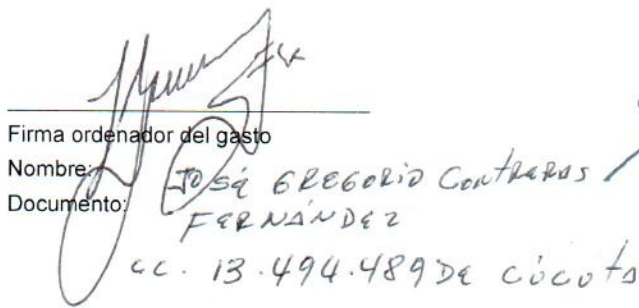 Firma ordenador del gasto
Nombre: José GREGORIO CONTRERAS
Documento: FERNÁNDEZ
cc. 13.494.489 DE CÚCUTA